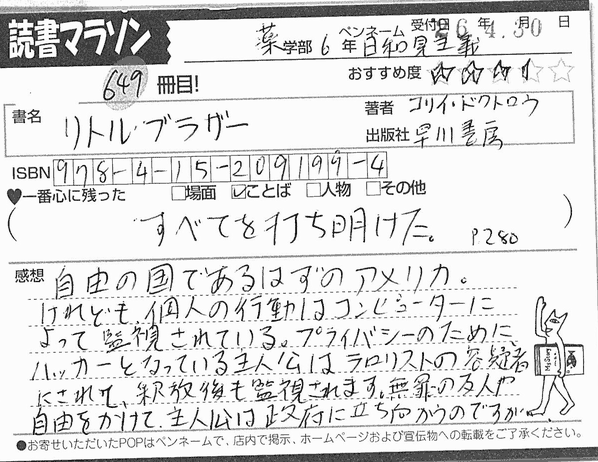 読書マラソン
薬学部 6年 ペンネーム 日和見主義 受付日 26年4月30日
649冊目!
おすすめ度 ★★★☆☆
書名 リトル・ブラザー
著者 コリイ・ドクトロウ
出版社 早川書房
ISBN 978-4-15-209199-4
♥一番心に残った □場面 ☑ことば □人物 □その他
(すべてを打ち明けた。 P280)
感想 自由の国であるはずのアメリカ。
けれども、個人の行動はコンピューターに
よって監視されている。プライバシーのために、
ハッカーとなっている主人公はテロリストの容疑者
にされて、釈放後も監視されます。無罪の友人や
自由をかけて、主人公は政府に立ち向かうのですが…
●お寄せいただいたPOPはペンネームで、店内で掲示、ホームページおよび宣伝物への転載をご了承ください。